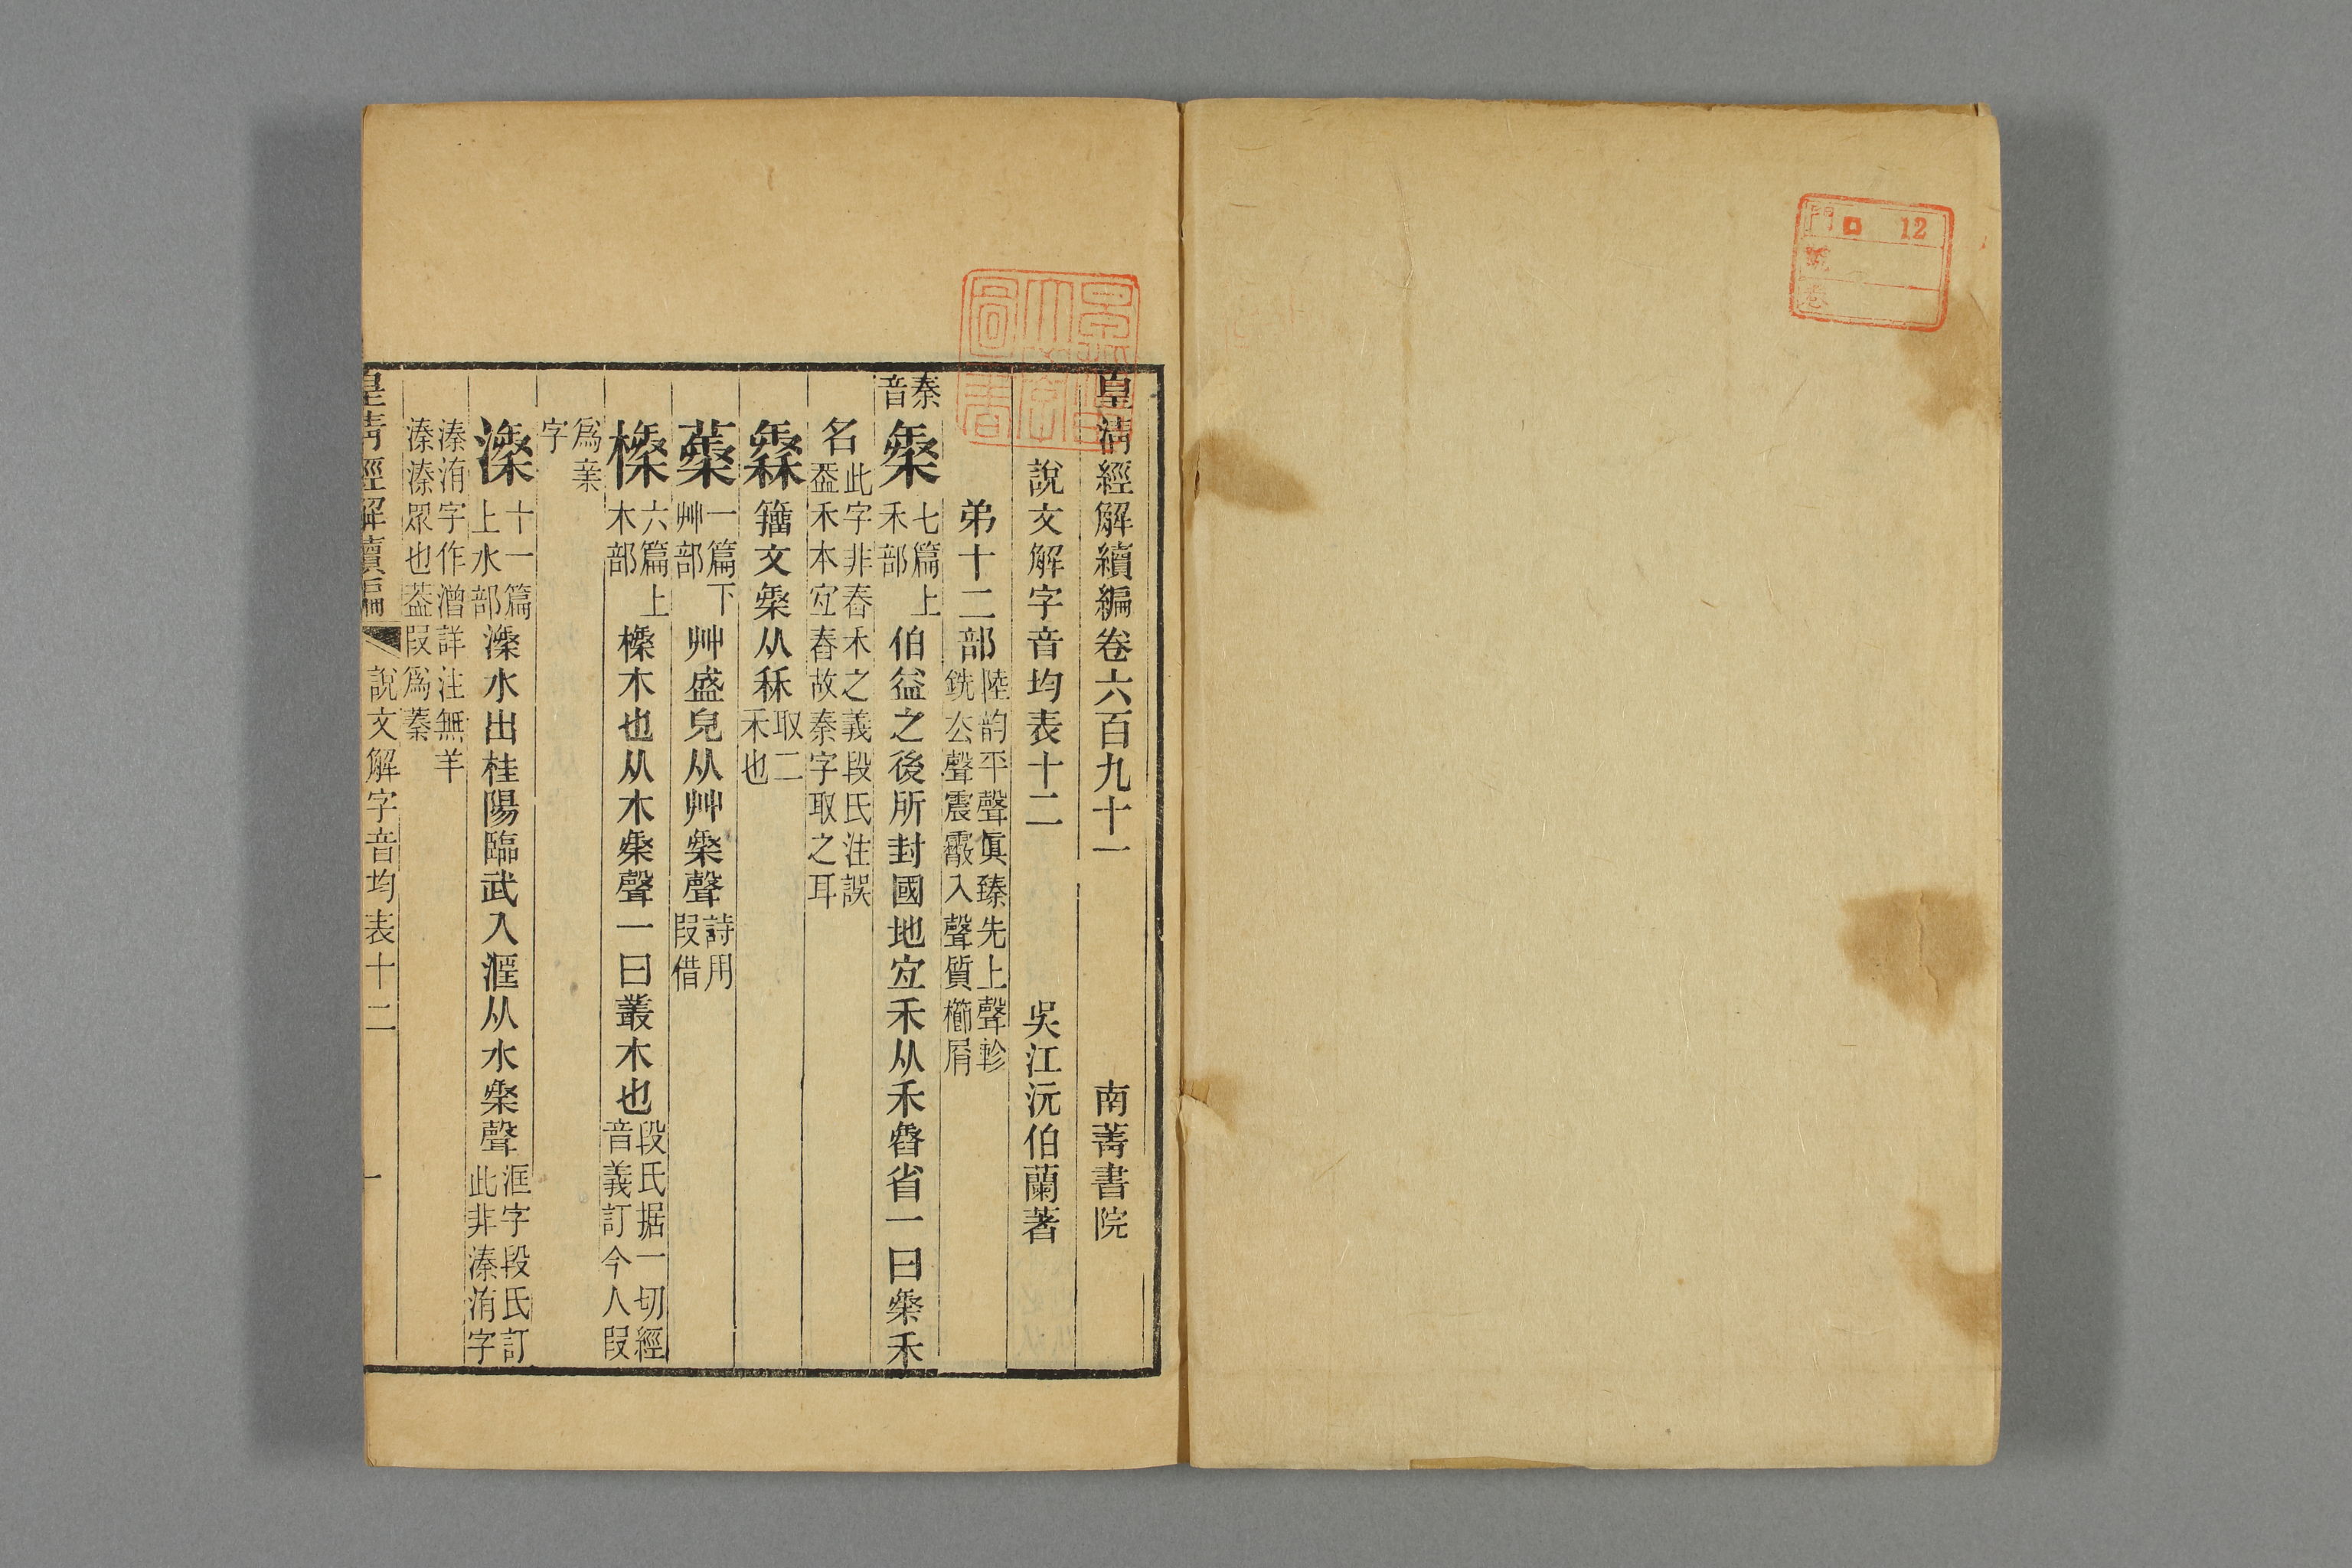 門 12
號
皇清經解續編卷六百九十一 南菁書院
說文解字音均表十二 吳江沅伯蘭著
弟十二部 陸韵平聲眞臻先上聲軫
銑去聲震霰入聲質櫛屑
秦音
𥠼 七篇上
禾部
伯益之後所封國地宜禾从禾舂省一曰𥠼禾
名 此字非舂禾之義段氏注誤
葢禾本宜舂故秦字取之耳
籒文𥠼从秝 取二
禾也
一篇下
艸部
艸盛皃从艸𥠼聲 詩用
叚借
六篇上
木部
榛木也从木𥠼聲一曰叢木也 段氏据一切經
音義訂今人叚
爲亲
字
十一篇
上水部
溱水出桂陽臨武入洭从水𥠼聲 洭字段氏訂
此非溱洧字
溱洧字作潧詳注無羊
溱溱眾也葢叚爲蓁
皇清經解續編 說文解字音均表十二 一